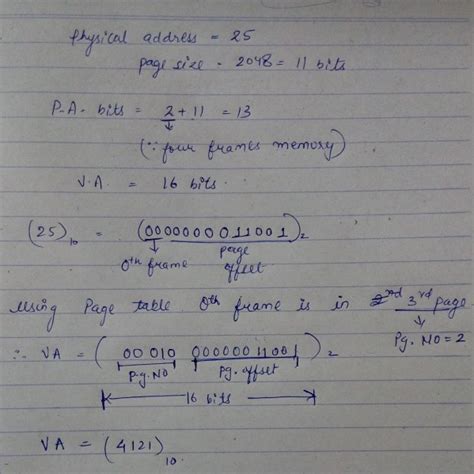 Physical address = 25
page size - 2048 = 11 bits
P.A. bits = 2 + 11 = 13
(∵ four frames memory)
V.A. = 16 bits.
(25)₁₀ = (0000000011001)₂
0th frame page offset
Using Page table 0th frame is in 3rd page
Pg. NO = 2
∴ VA = (00010 00000011001)₂
P.g. NO Pg. offset
16 bits
VA = (4121)₁₀.